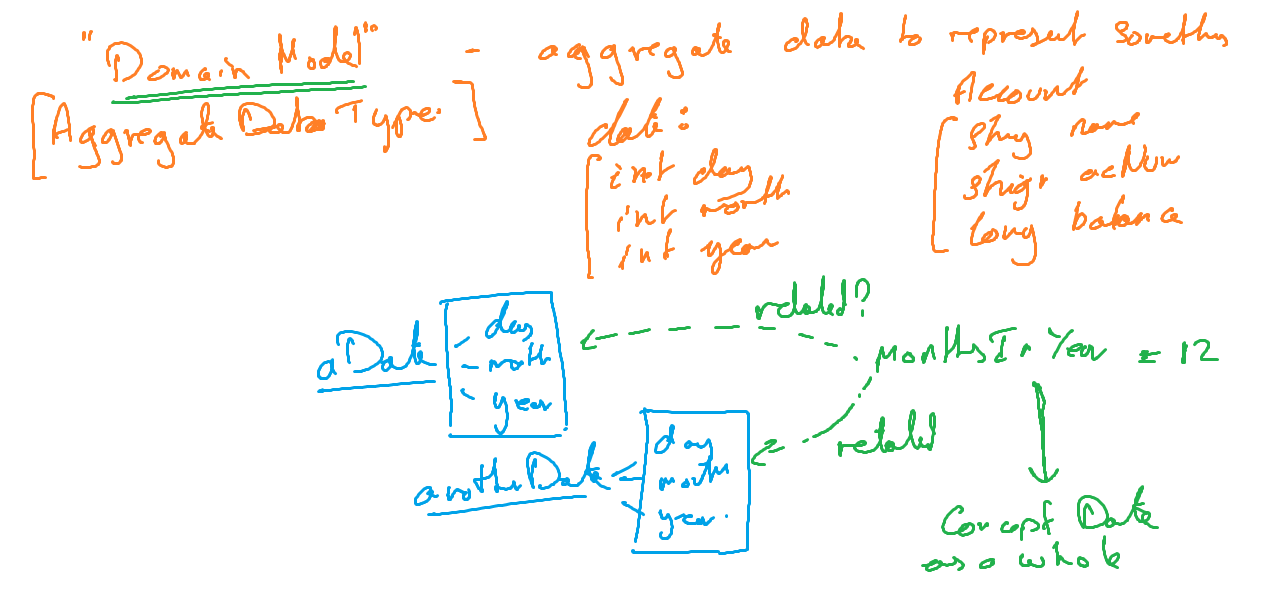 "Domain Model" - aggregate data to represent somethg
[Aggregate Data Type.]
date:
int day
int month
int year
Account
string name
string acNum
long balance
aDate
day
month
year
related?
monthsInYear = 12
related
anotherDate
day
month
year.
Concept Date
as a whole